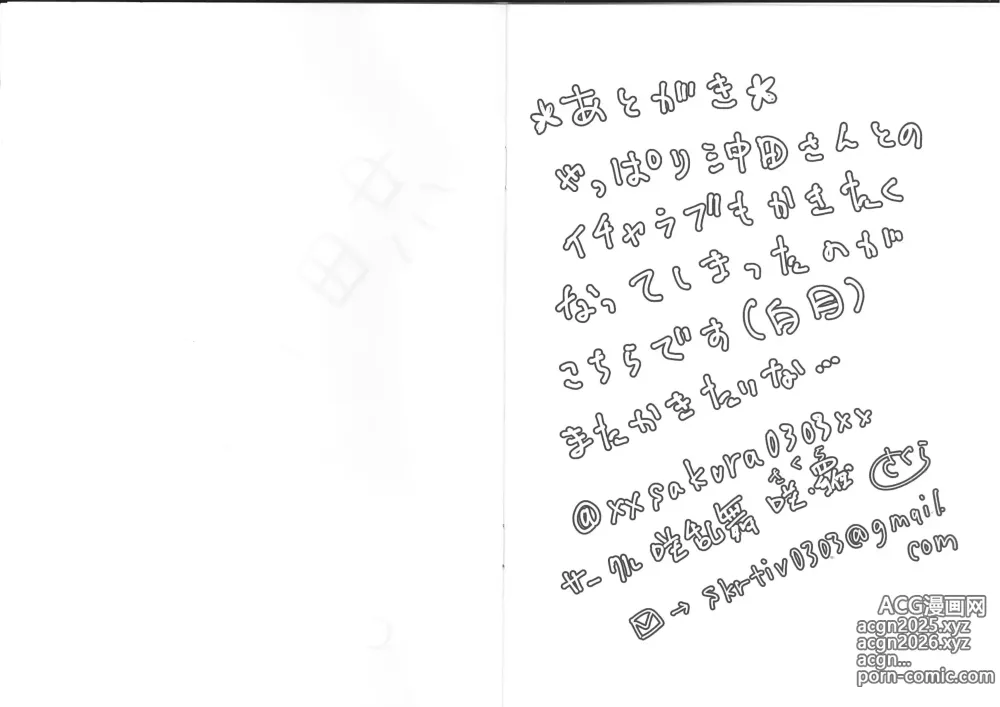 *あとがき*
やっぱり沖田さんとの
イチャラブもかきたく
なってしまったのが
こちらです(白目)
またかきたいな…
@xxsakura0303xx
サークル 咲乱舞 咲羅
さくら
✉→skrtiv0303@gmail.
com
ACG漫画网
acgn2025.xyz
acgn2026.xyz
acgn...
porn-comic.com